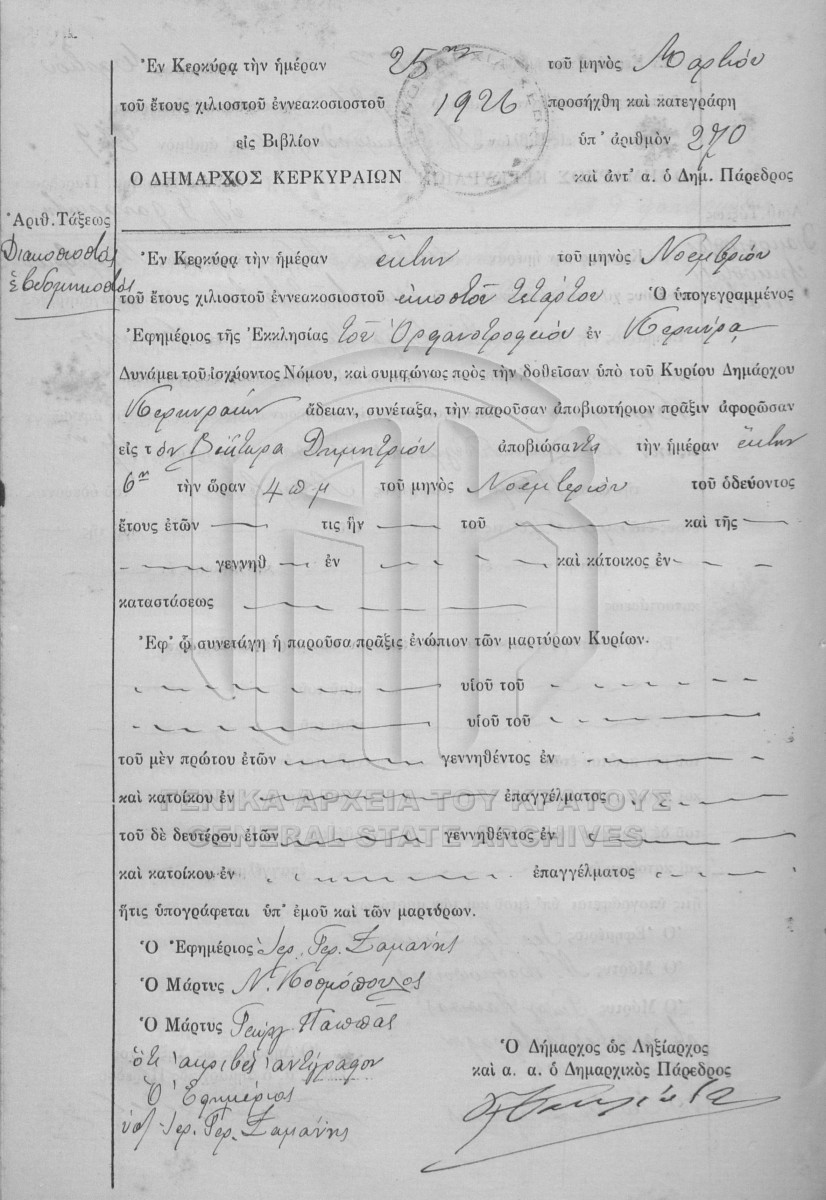 Ἐν Κερκύρᾳ τὴν ἡμέραν 25ην τοῦ μηνὸς Μαρτίου
τοῦ ἔτους χιλιοστοῦ ἐννεακοσιοστοῦ 1926 προσήχθη καὶ κατεγράφη
εἰς Βιβλίον ὑπ' ἀριθμὸν 270
Ο ΔΗΜΑΡΧΟΣ ΚΕΡΚΥΡΑΙΩΝ καὶ ἀντ' α. ὁ Δημ. Πάρεδρος
Ἀριθ. Τάξεως
Διακοσιοστὸς
ἑβδομηκοστὸς
Ἐν Κερκύρᾳ τὴν ἡμέραν ἕκτην τοῦ μηνὸς Νοεμβρίου
τοῦ ἔτους χιλιοστοῦ ἐννεακοσιοστοῦ εἰκοστοῦ τετάρτου Ὁ ὑπογεγραμμένος
Ἐφημέριος τῆς Ἐκκλησίας τοῦ Ὀρφανοτροφείου ἐν Κερκύρᾳ
Δυνάμει τοῦ ἰσχύοντος Νόμου, καὶ συμφώνως πρὸς τὴν δοθεῖσαν ὑπὸ τοῦ Κυρίου Δημάρχου
Κερκυραίων ἄδειαν, συνέταξα, τὴν παροῦσαν ἀποβιωτήριον πρᾶξιν ἀφορῶσαν
εἰς τὸν Βίκτωρα Δημητρίου ἀποβιώσαντα τὴν ἡμέραν ἕκτην
6ην τὴν ὥραν 4 π μ τοῦ μηνὸς Νοεμβρίου τοῦ ὁδεύοντος
ἔτους ἐτῶν τις ἦν τοῦ καὶ τῆς
γεννηθ ἐν καὶ κάτοικος ἐν
καταστάσεως
Ἐφ' ᾧ συνετάγη ἡ παροῦσα πρᾶξις ἐνώπιον τῶν μαρτύρων Κυρίων.
υἱοῦ τοῦ
υἱοῦ τοῦ
τοῦ μὲν πρώτου ἐτῶν γεννηθέντος ἐν
καὶ κατοίκου ἐν ἐπαγγέλματος
ΓΕΝΙΚΑ ΑΡΧΕΙΑ ΤΟΥ ΚΡΑΤΟΥΣ
τοῦ δὲ δευτέρου ἐτῶν γεννηθέντος ἐν
GENERAL STATE ARCHIVES
καὶ κατοίκου ἐν ἐπαγγέλματος
ἥτις ὑπογράφεται ὑπ' ἐμοῦ καὶ τῶν μαρτύρων.
Ὁ Ἐφημέριος Ἱερ. Γερ. Ζαμάνης
Ὁ Μάρτυς Ν. Κοσμόπουλος
Ὁ Μάρτυς Γεώργ Παππᾶς
ὅτι ἀκριβὲς ἀντίγραφον
Ὁ Ἐφημέριος
ὑπ. Ἱερ. Γερ. Ζαμάνης
Ὁ Δήμαρχος ὡς Ληξίαρχος
καὶ α. α. ὁ Δημαρχικὸς Πάρεδρος